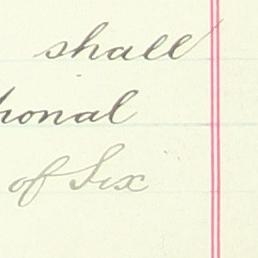 shall
tional
of Six